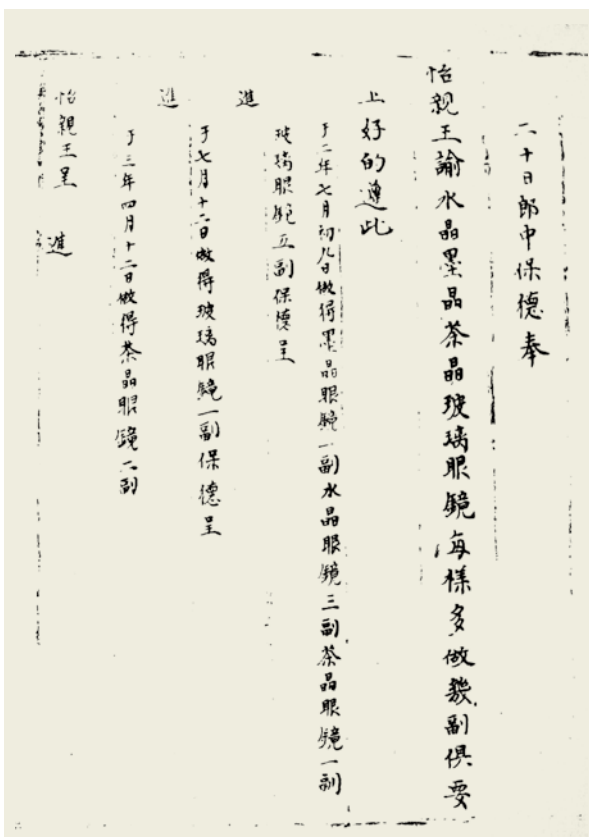 二十日郎中保德奉
怡親王諭水晶墨晶茶晶玻璃眼鏡每樣多做幾副俱要
上好的遵此
于二年七月初九日做得墨晶眼鏡一副水晶眼鏡三副茶晶眼鏡一副
玻璃眼鏡五副保德呈
進
于七月十二日做得玻璃眼鏡一副保德呈
進
于三年四月十二日做得茶晶眼鏡二副
怡親王呈 進